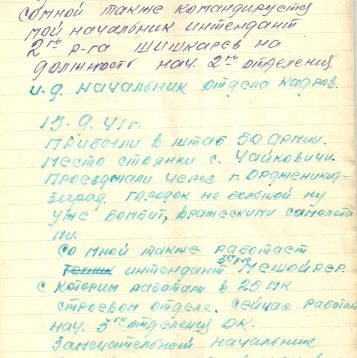 со мной также командируется
мой начальник интендант
2го р-га Шишкарев на
должность нач. 2го отделения
и.д. начальник отдела кадров.
13.9.41г.
Прибыли в штаб 50 Армии.
Место стоянки с. Чайковичи.
Проезжали через г. Ордженикид-
зеград. городок не большой но
уже бомбит, вражескими самолета
ми.
Со мной также работает
интендант 3го р-га Мешойрер
с которым работали в 25 ск
строевом отделе. сейчас работает
нач. 3го отделения ОК.
Заместительной начальник